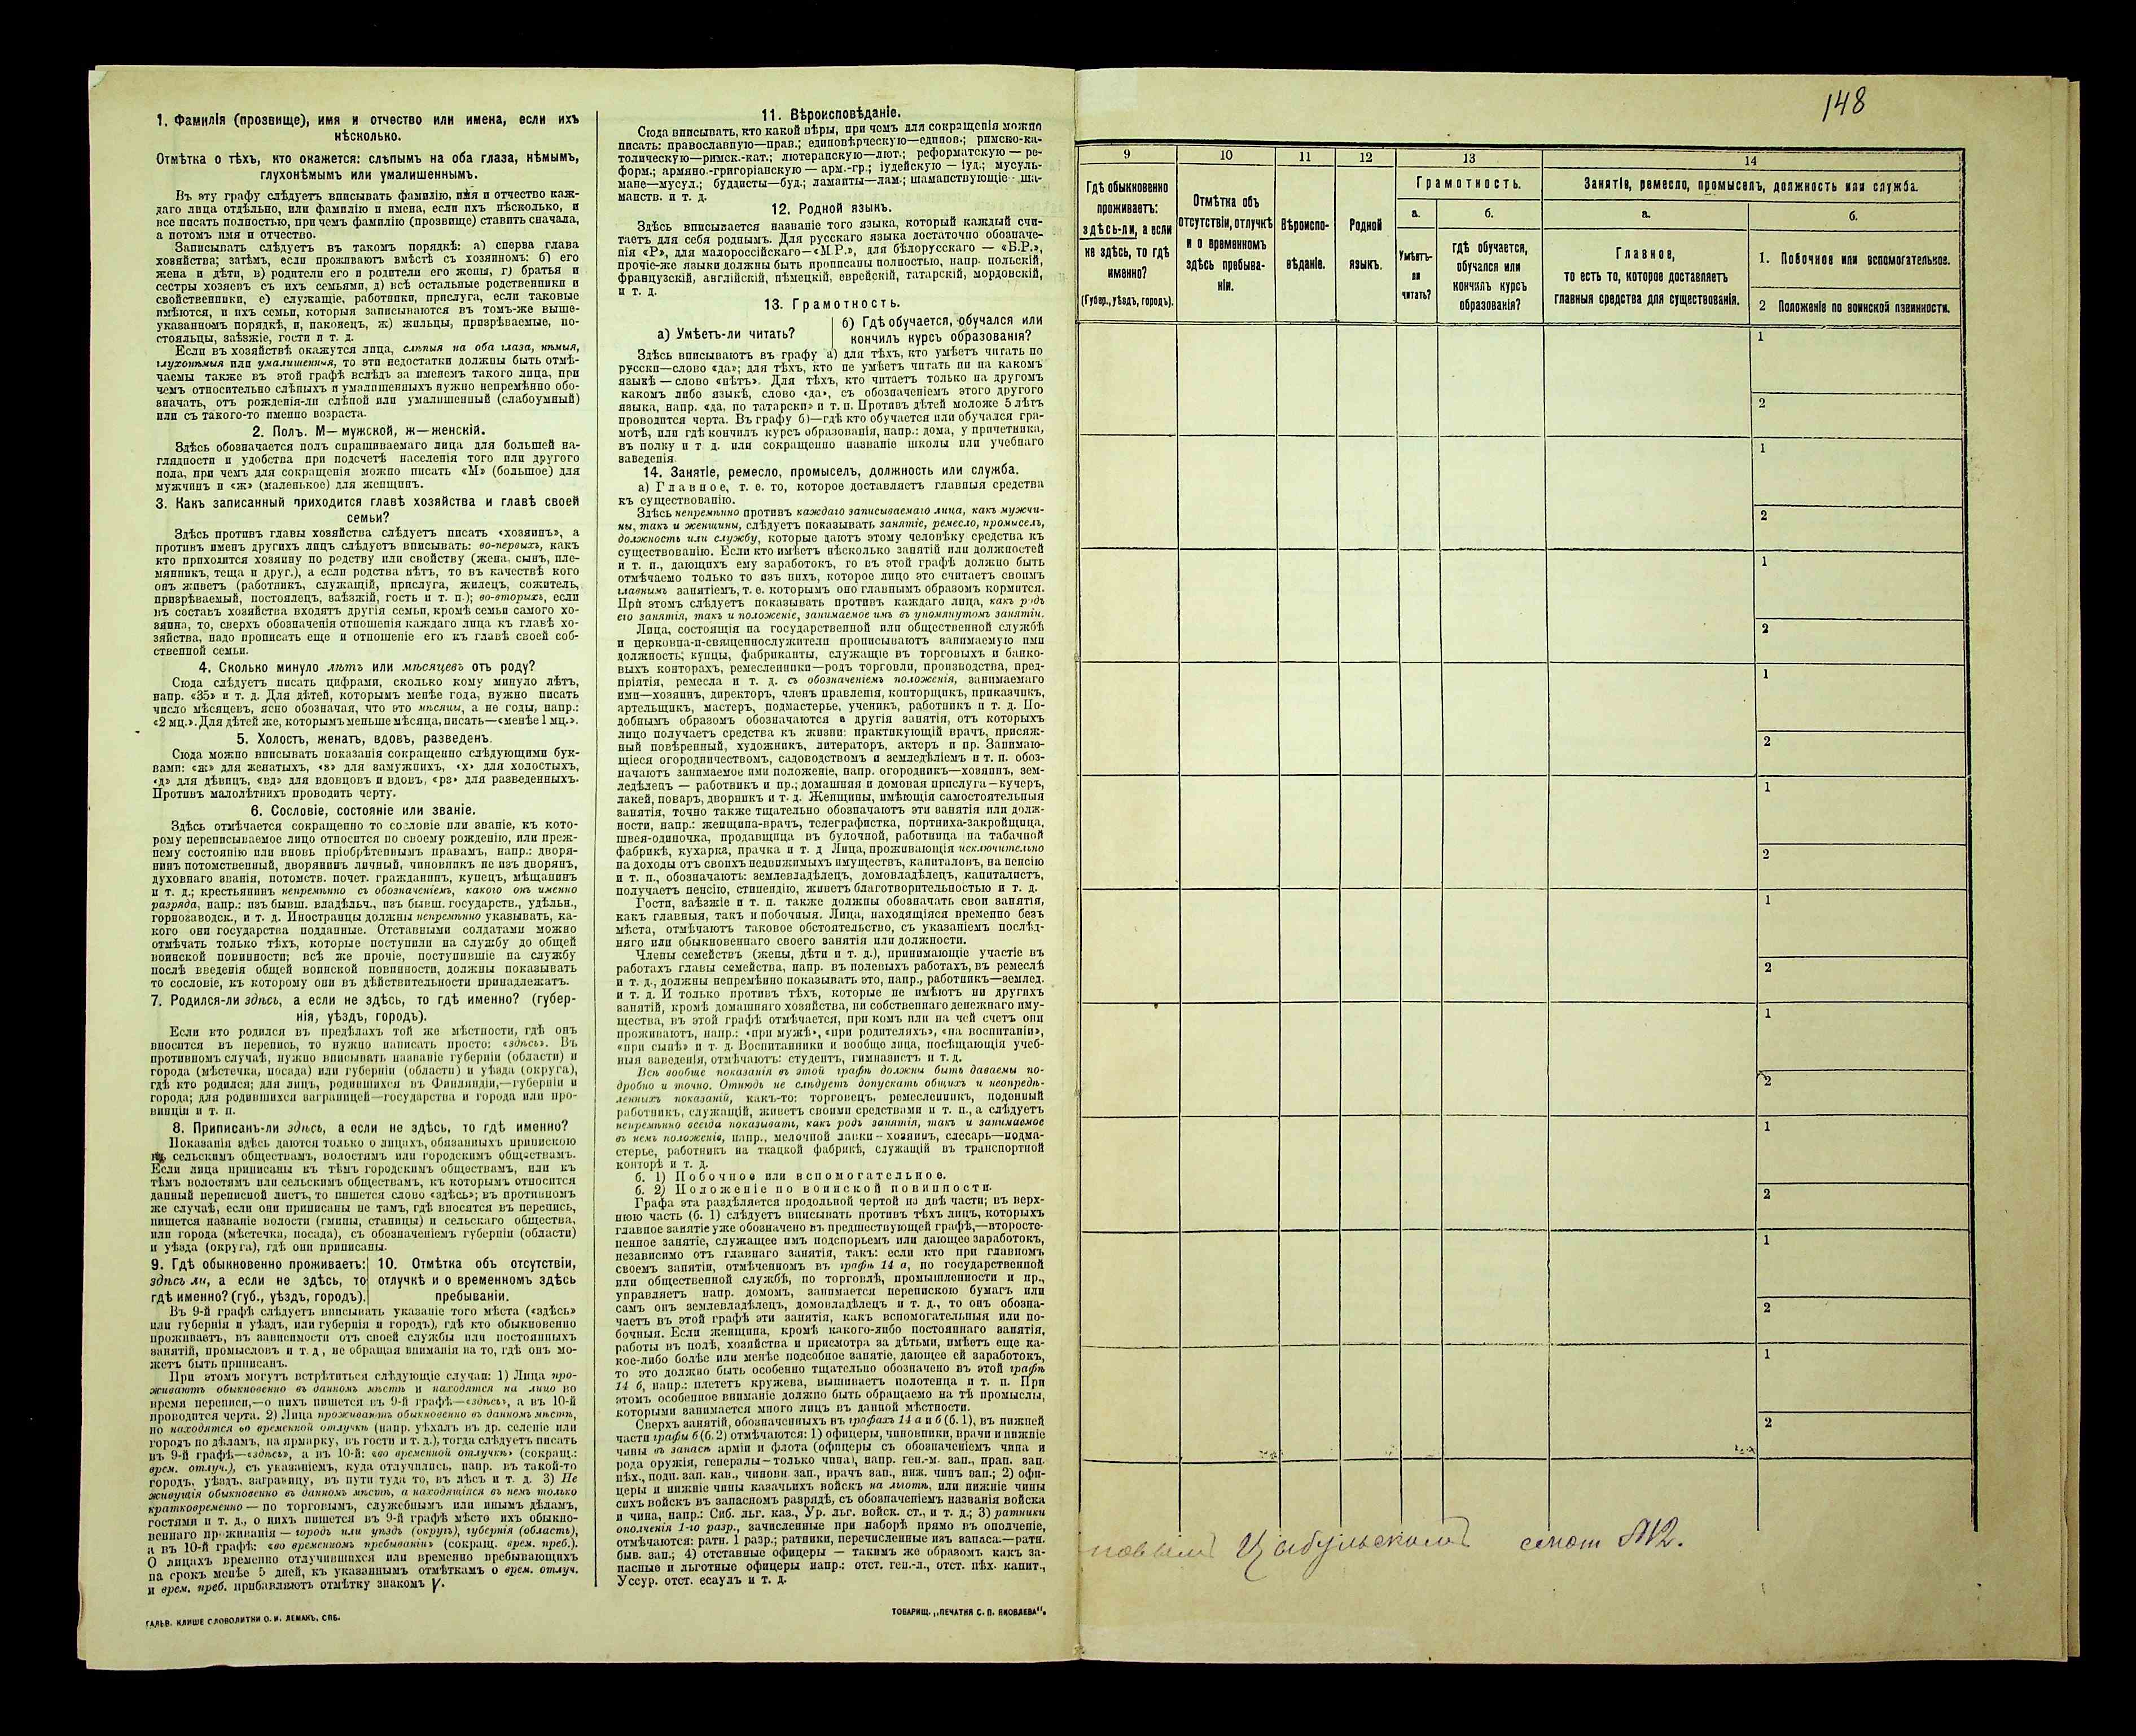 1. Фамилія (прозвище), имя и отчество или имена, если ихъ
нѣсколько.
Отмѣтка о тѣхъ, кто окажется: слѣпымъ на оба глаза, нѣмымъ,
глухонѣмымъ или умалишеннымъ.
Въ эту графу слѣдуетъ вписывать фамилію, имя и отчество каж-
даго лица отдѣльно, или фамилію и имена, если ихъ нѣсколько, и
все писать полностью, при чемъ фамилію (прозвище) ставить сначала,
а потомъ имя и отчество.
Записывать слѣдуетъ въ такомъ порядкѣ: а) сперва глава
хозяйства; затѣмъ, если проживаютъ вмѣстѣ съ хозяиномъ: б) его
жена и дѣти, в) родители его и родители его жены, г) братья и
сестры хозяевъ съ ихъ семьями, д) всѣ остальные родственники и
свойственники, е) служащіе, работники, прислуга, если таковые
имѣются, и ихъ семьи, которыя записываются въ томъ-же выше-
указанномъ порядкѣ, и, наконецъ, ж) жильцы, призрѣваемые, по-
стояльцы, заѣзжіе, гости и т. п.
Если въ хозяйствѣ окажутся лица, слѣпыя на оба глаза, нѣмыя,
глухонѣмыя или умалишенныя, то эти недостатки должны быть отмѣ-
чаемы также въ этой графѣ вслѣдъ за именемъ такого лица, при
чемъ относительно слѣпыхъ и умалишенныхъ нужно непремѣнно обо-
значать, отъ рожденія-ли слѣпой или умалишенный (слабоумный)
или съ такого-то именно возраста.
2. Полъ. М—мужской, ж—женскій.
Здѣсь обозначается полъ спрашиваемаго лица для большей на-
глядности и удобства при подсчетѣ населенія того или другого
пола, при чемъ для сокращенія можно писать «М» (большое) для
мужчинъ и «ж» (маленькое) для женщинъ.
3. Какъ записанный приходится главѣ хозяйства и главѣ своей
семьи?
Здѣсь противъ главы хозяйства слѣдуетъ писать «хозяинъ», а
противъ именъ другихъ лицъ слѣдуетъ вписывать: во-первыхъ, какъ
кто приходится хозяину по родству или свойству (жена, сынъ, пле-
мянникъ, теща и друг.), а если родства нѣтъ, то въ качествѣ кого
онъ живетъ (работникъ, служащій, прислуга, жилецъ, сожитель,
призрѣваемый, постоялецъ, заѣзжій, гость и т. п.); во-вторыхъ, если
въ составъ хозяйства входятъ другія семьи, кромѣ семьи самого хо-
зяина, то, сверхъ обозначенія отношенія каждаго лица къ главѣ хо-
зяйства, надо прописать еще и отношеніе его къ главѣ своей соб-
ственной семьи.
4. Сколько минуло лѣтъ или мѣсяцевъ отъ роду?
Сюда слѣдуетъ писать цифрами, сколько кому минуло лѣтъ,
напр. «35» и т. д. Для дѣтей, которымъ менѣе года, нужно писать
число мѣсяцевъ, ясно обозначая, что это мѣсяцы, а не годы, напр.:
«2 мц.». Для дѣтей же, которымъ меньше мѣсяца, писать—«менѣе 1 мц.».
5. Холостъ, женатъ, вдовъ, разведенъ.
Сюда можно вписывать показанія сокращенно слѣдующими бук-
вами: «ж» для женатыхъ, «з» для замужнихъ, «х» для холостыхъ,
«д» для дѣвицъ, «вд» для вдовцовъ и вдовъ, «рз» для разведенныхъ.
Противъ малолѣтнихъ проводить черту.
6. Сословіе, состояніе или званіе.
Здѣсь отмѣчается сокращенно то сословіе или званіе, къ кото-
рому переписываемое лицо относится по своему рожденію, или преж-
нему состоянію или вновь пріобрѣтеннымъ правамъ, напр.: дворя-
нинъ потомственный, дворянинъ личный, чиновникъ не изъ дворянъ,
духовнаго званія, потомств. почет. гражданинъ, купецъ, мѣщанинъ
и т. д.; крестьянинъ непремѣнно съ обозначеніемъ, какого онъ именно
разряда, напр.: изъ бывш. владѣльч., изъ бывш. государств., удѣльн.,
горнозаводск., и т. д. Иностранцы должны непремѣнно указывать, ка-
кого они государства подданные. Отставными солдатами можно
отмѣчать только тѣхъ, которые поступили на службу до общей
воинской повинности; всѣ же прочіе, поступившіе на службу
послѣ введенія общей воинской повинности, должны показывать
то сословіе, къ которому они въ дѣйствительности принадлежатъ.
7. Родился-ли здѣсь, а если не здѣсь, то гдѣ именно? (губер-
нія, уѣздъ, городъ).
Если кто родился въ предѣлахъ той же мѣстности, гдѣ онъ
вносится въ перепись, то нужно написать просто: «здѣсь». Въ
противномъ случаѣ, нужно вписывать названіе губерніи (области) и
города (мѣстечка, посада) или губерніи (области) и уѣзда (округа),
гдѣ кто родился; для лицъ, родившихся въ Финляндіи,—губерніи и
города; для родившихся заграницей—государства и города или про-
винціи и т. п.
8. Приписанъ-ли здѣсь, а если не здѣсь, то гдѣ именно?
Показанія здѣсь даются только о лицахъ, обязанныхъ припискою
къ сельскимъ обществамъ, волостямъ или городскимъ обществамъ.
Если лица приписаны къ тѣмъ городскимъ обществамъ, или къ
тѣмъ волостямъ или сельскимъ обществамъ, къ которымъ относится
данный переписной листъ, то пишется слово «здѣсь»; въ противномъ
же случаѣ, если они приписаны не тамъ, гдѣ вносятся въ перепись,
пишется названіе волости (гмины, станицы) и сельскаго общества,
или города (мѣстечка, посада), съ обозначеніемъ губерніи (области)
и уѣзда (округа), гдѣ они приписаны.
9. Гдѣ обыкновенно проживаетъ:
здѣсь ли, а если не здѣсь, то
гдѣ именно? (губ., уѣздъ, городъ).
10. Отмѣтка объ отсутствіи,
отлучкѣ и о временномъ здѣсь
пребываніи.
Въ 9-й графѣ слѣдуетъ вписывать указаніе того мѣста («здѣсь»
или губернія и уѣздъ, или губернія и городъ), гдѣ кто обыкновенно
проживаетъ, въ зависимости отъ своей службы или постоянныхъ
занятій, промысловъ и т. д, не обращая вниманія на то, гдѣ онъ мо-
жетъ быть приписанъ.
При этомъ могутъ встрѣтиться слѣдующіе случаи: 1) Лица про-
живаютъ обыкновенно въ данномъ мѣстѣ и находятся на лицо во
время переписи,—о нихъ пишется въ 9-й графѣ—«здѣсь», а въ 10-й
проводится черта. 2) Лица проживаютъ обыкновенно въ данномъ мѣстѣ,
но находятся во временной отлучкѣ (напр. уѣхалъ въ др. селеніе или
городъ по дѣламъ, на ярмарку, въ гости и т. д.), тогда слѣдуетъ писать
въ 9-й графѣ—«здѣсь», а въ 10-й: «во временной отлучкѣ» (сокращ.:
врем. отлуч.), съ указаніемъ, куда отлучились, напр. въ такой-то
городъ, уѣздъ, заграницу, въ пути туда то, въ лѣсъ и т. д. 3) Не
живущія обыкновенно въ данномъ мѣстѣ, а находящіяся въ немъ только
кратковременно — по торговымъ, служебнымъ или инымъ дѣламъ,
гостями и т. д., о нихъ пишется въ 9-й графѣ мѣсто ихъ обыкно-
веннаго проживанія — городъ или уѣздъ (округъ), губернія (область),
а въ 10-й графѣ: «во временномъ пребываніи» (сокращ. врем. преб.).
О лицахъ временно отлучившихся или временно пребывающихъ
на срокъ менѣе 5 дней, къ указаннымъ отмѣткамъ о врем. отлуч.
и врем. преб. прибавляютъ отмѣтку знакомъ V.
ГАЛЬВ. КЛИШЕ СЛОВОЛИТНИ О. И. ЛЕМАНЪ, СПБ.
11. Вѣроисповѣданіе.
Сюда вписывать, кто какой вѣры, при чемъ для сокращенія можно
писать: православную—прав.; единовѣрческую—единов.; римско-ка-
толическую—римск.-кат.; лютеранскую—лют.; реформатскую — ре-
форм.; армяно.-григоріанскую — арм.-гр.; іудейскую — іуд.; мусуль-
мане—мусул.; буддисты—буд.; ламаиты—лам.; шаманствующіе—ша-
манств. и т. д.
12. Родной языкъ.
Здѣсь вписывается названіе того языка, который каждый счи-
таетъ для себя роднымъ. Для русскаго языка достаточно обозначе-
нія «Р», для малороссійскаго—«М.Р.», для бѣлорусскаго — «Б.Р.»,
прочіе-же языки должны быть прописаны полностью, напр. польскій,
французскій, англійскій, нѣмецкій, еврейскій, татарскій, мордовскій,
и т. д.
13. Грамотность.
а) Умѣетъ-ли читать?
б) Гдѣ обучается, обучался или
кончилъ курсъ образованія?
Здѣсь вписываютъ въ графу а) для тѣхъ, кто умѣетъ читать по
русски—слово «да»; для тѣхъ, кто не умѣетъ читать ни на какомъ
языкѣ — слово «нѣтъ». Для тѣхъ, кто читаетъ только на другомъ
какомъ либо языкѣ, слово «да», съ обозначеніемъ этого другого
языка, напр. «да, по татарски» и т. п. Противъ дѣтей моложе 5 лѣтъ
проводится черта. Въ графу б)—гдѣ кто обучается или обучался гра-
мотѣ, или гдѣ кончилъ курсъ образованія, напр.: дома, у причетника,
въ полку и т д. или сокращенно названіе школы или учебнаго
заведенія.
14. Занятіе, ремесло, промыселъ, должность или служба.
а) Главное, т. е. то, которое доставляетъ главныя средства
къ существованію.
Здѣсь непремѣнно противъ каждаго записываемаго лица, какъ мужчи-
ны, такъ и женщины, слѣдуетъ показывать занятіе, ремесло, промыселъ,
должность или службу, которые даютъ этому человѣку средства къ
существованію. Если кто имѣетъ нѣсколько занятій или должностей
и т. п., дающихъ ему заработокъ, то въ этой графѣ должно быть
отмѣчаемо только то изъ нихъ, которое лицо это считаетъ своимъ
главнымъ занятіемъ, т. е. которымъ оно главнымъ образомъ кормится.
При этомъ слѣдуетъ показывать противъ каждаго лица, какъ родъ
его занятія, такъ и положеніе, занимаемое имъ въ упомянутомъ занятіи.
Лица, состоящія на государственной или общественной службѣ
и церковно-и-священнослужители прописываютъ занимаемую ими
должность; купцы, фабриканты, служащіе въ торговыхъ и банко-
выхъ конторахъ, ремесленники—родъ торговли, производства, пред-
пріятія, ремесла и т. д. съ обозначеніемъ положенія, занимаемаго
ими—хозяинъ, директоръ, членъ правленія, конторщикъ, приказчикъ,
артельщикъ, мастеръ, подмастерье, ученикъ, работникъ и т. д. По-
добнымъ образомъ обозначаются и другія занятія, отъ которыхъ
лицо получаетъ средства къ жизни: практикующій врачъ, присяж-
ный повѣренный, художникъ, литераторъ, актеръ и пр. Занимаю-
щіеся огородничествомъ, садоводствомъ и земледѣліемъ и т. п. обоз-
начаютъ занимаемое ими положеніе, напр. огородникъ—хозяинъ, зем-
ледѣлецъ — работникъ и пр.; домашняя и домовая прислуга—кучеръ,
лакей, поваръ, дворникъ и т. д. Женщины, имѣющія самостоятельныя
занятія, точно также тщательно обозначаютъ эти занятія или долж-
ности, напр.: женщина-врачъ, телеграфистка, портниха-закройщица,
швея-одиночка, продавщица въ булочной, работница на табачной
фабрикѣ, кухарка, прачка и т. д Лица, проживающія исключительно
на доходы отъ своихъ недвижимыхъ имуществъ, капиталовъ, на пенсію
и т. п., обозначаютъ: землевладѣлецъ, домовладѣлецъ, капиталистъ,
получаетъ пенсію, стипендію, живетъ благотворительностью и т. д.
Гости, заѣзжіе и т. п. также должны обозначать свои занятія,
какъ главныя, такъ и побочныя. Лица, находящіяся временно безъ
мѣста, отмѣчаютъ таковое обстоятельство, съ указаніемъ послѣд-
няго или обыкновеннаго своего занятія или должности.
Члены семействъ (жены, дѣти и т. д.), принимающіе участіе въ
работахъ главы семейства, напр. въ полевыхъ работахъ, въ ремеслѣ
и т. д., должны непремѣнно показывать это, напр., работникъ—землед.
и т. д. И только противъ тѣхъ, которые не имѣютъ ни другихъ
занятій, кромѣ домашняго хозяйства, ни собственнаго денежнаго иму-
щества, въ этой графѣ отмѣчается, при комъ или на чей счетъ они
проживаютъ, напр.: «при мужѣ», «при родителяхъ», «на воспитаніи»,
«при сынѣ» и т. д. Воспитанники и вообще лица, посѣщающія учеб-
ныя заведенія, отмѣчаютъ: студентъ, гимназистъ и т. д.
Всѣ вообще показанія въ этой графѣ должны быть даваемы по-
дробно и точно. Отнюдь не слѣдуетъ допускать общихъ и неопредѣ-
ленныхъ показаній, какъ-то: торговецъ, ремесленникъ, поденный
работникъ, служащій, живетъ своими средствами и т. п., а слѣдуетъ
непремѣнно всегда показывать, какъ родъ занятія, такъ и занимаемое
въ немъ положеніе, напр., мелочной лавки—хозяинъ, слесарь—подма-
стерье, работникъ на ткацкой фабрикѣ, служащій въ транспортной
конторѣ и т. д.
б. 1) Побочное или вспомогательное.
б. 2) Положеніе по воинской повинности.
Графа эта раздѣляется продольной чертой на двѣ части; въ верх-
нюю часть (б. 1) слѣдуетъ вписывать противъ тѣхъ лицъ, которыхъ
главное занятіе уже обозначено въ предшествующей графѣ,—второсте-
пенное занятіе, служащее имъ подспорьемъ или дающее заработокъ,
независимо отъ главнаго занятія, такъ: если кто при главномъ
своемъ занятіи, отмѣченномъ въ графѣ 14 а, по государственной
или общественной службѣ, по торговлѣ, промышленности и пр.,
управляетъ напр. домомъ, занимается перепискою бумагъ или
самъ онъ землевладѣлецъ, домовладѣлецъ и т. д., то онъ обозна-
чаетъ въ этой графѣ эти занятія, какъ вспомогательныя или по-
бочныя. Если женщина, кромѣ какого-либо постояннаго занятія,
работы въ полѣ, хозяйства и присмотра за дѣтьми, имѣетъ еще ка-
кое-либо болѣе или менѣе подсобное занятіе, дающее ей заработокъ,
то это должно быть особенно тщательно обозначено въ этой графѣ
14 б, напр.: плететъ кружева, вышиваетъ полотенца и т. п. При
этомъ особенное вниманіе должно быть обращаемо на тѣ промыслы,
которыми занимается много лицъ въ данной мѣстности.
Сверхъ занятій, обозначенныхъ въ графахъ 14 а и б (б. 1), въ нижней
части графы б (б. 2) отмѣчаются: 1) офицеры, чиновники, врачи и нижніе
чины въ запасѣ арміи и флота (офицеры съ обозначеніемъ чина и
рода оружія, генералы—только чина), напр. ген.-м. зап., прап. зап.
пѣх., подп. зап. кав., чиновн. зап., врачъ зап., ниж. чинъ зап.; 2) офи-
церы и нижніе чины казачьихъ войскъ на льготѣ, или нижніе чины
сихъ войскъ въ запасномъ разрядѣ, съ обозначеніемъ названія войска
и чина, напр.: Сиб. льг. каз., Ур. льг. войск. ст., и т. д.; 3) ратники
ополченія 1-го разр., зачисленные при наборѣ прямо въ ополченіе,
отмѣчаются: ратн. 1 разр.; ратники, перечисленные изъ запаса—ратн.
быв. зап.; 4) отставные офицеры — такимъ же образомъ какъ за-
пасные и льготные офицеры напр.: отст. ген.-л., отст. пѣх. капит.,
Уссур. отст. есаулъ и т. д.
ТОВАРИЩ. „ПЕЧАТНЯ С. П. ЯКОВЛЕВА".
148
9
10
11
12
13
14
Гдѣ обыкновенно
проживаетъ:
здѣсь-ли, а если
не здѣсь, то гдѣ
именно?
(Губер., уѣздъ, городъ).
Отмѣтка объ
отсутствіи, отлучкѣ
и о временномъ
здѣсь пребыва-
ніи.
Вѣроиспо-
вѣданіе.
Родной
языкъ.
Грамотность.
а.
Умѣетъ-
ли
читать?
б.
гдѣ обучается,
обучался или
кончилъ курсъ
образованія?
Занятіе, ремесло, промыселъ, должность или служба.
а.
Главное,
то есть то, которое доставляетъ
главныя средства для существованія.
б.
1. Побочное или вспомогательное.
2 Положеніе по воинской повинности.
1
2
1
2
1
2
1
2
1
2
1
2
1
2
1
2
1
2
1
2